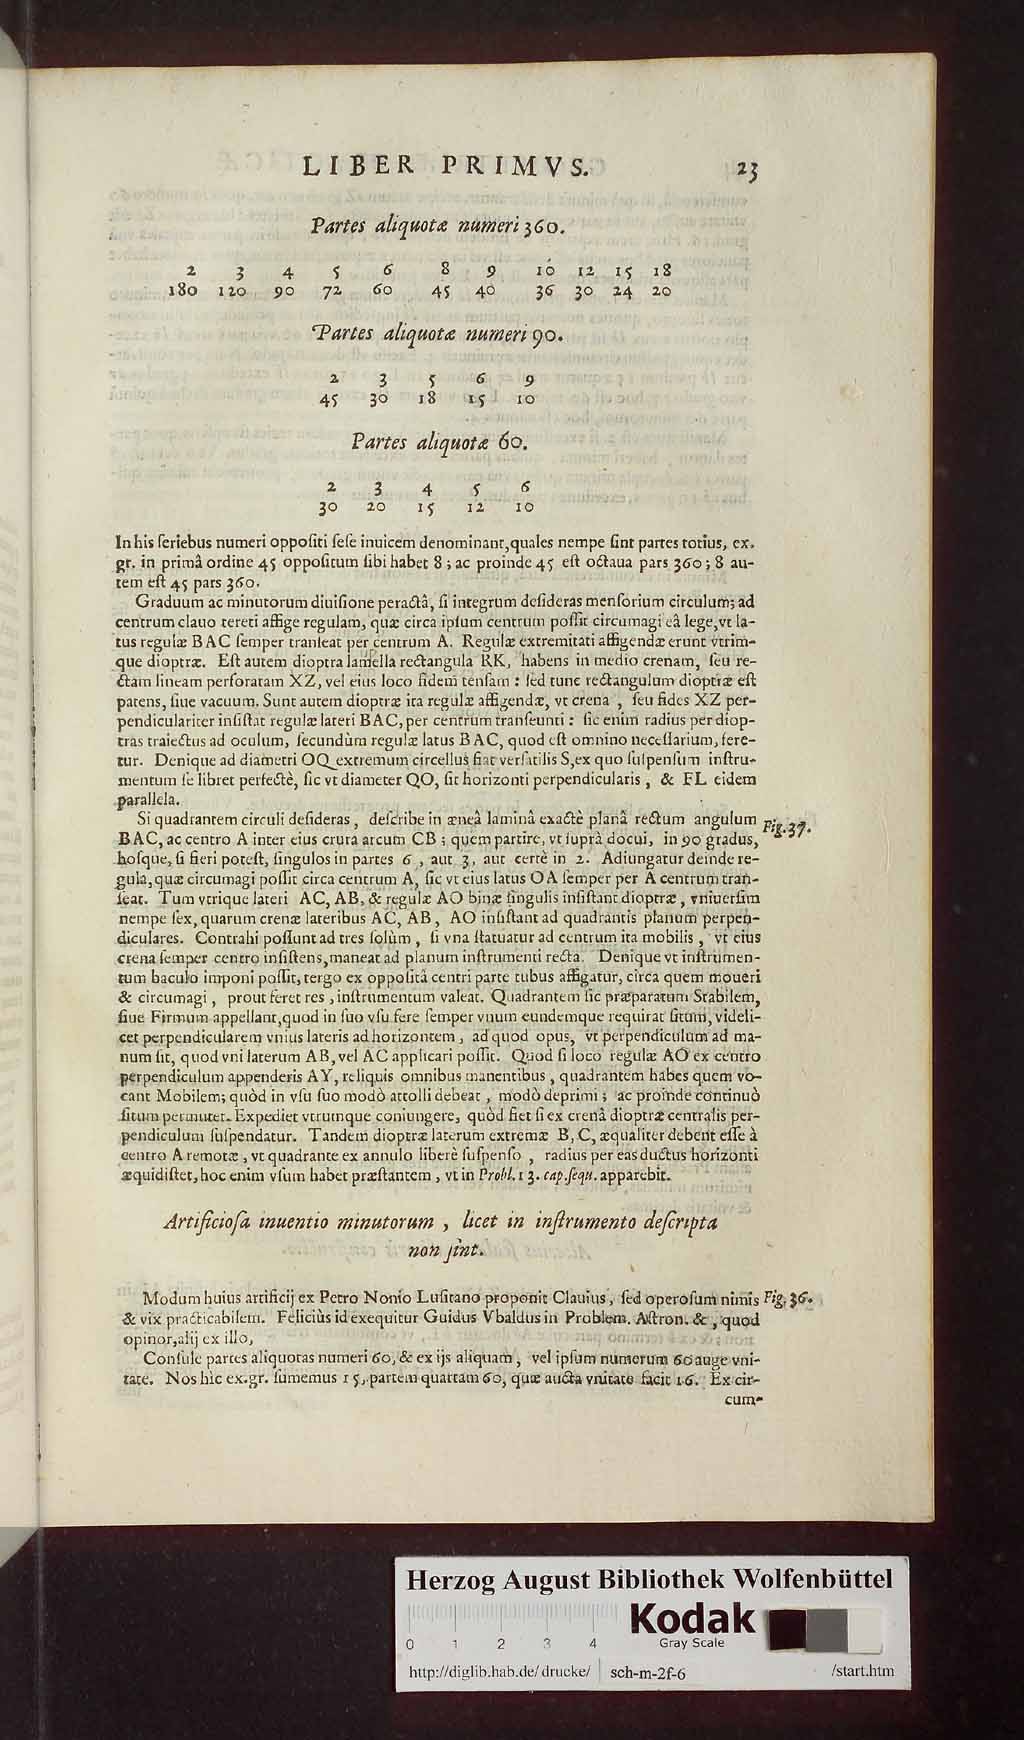 LIBER PRIMVS. 23
Partes aliquotæ numeri 360.
2 3 4 5 6 8 9 10 12 15 18
180 120 90 72 60 45 40 36 30 24 20
Partes aliquotæ numeri 90.
2 3 5 6 9
45 30 18 15 10
Partes aliquotæ 60.
2 3 4 5 6
30 20 15 12 10
In his ſeriebus numeri oppoſiti ſeſe inuicem denominant, quales nempe ſint partes totius, ex.
gr. in primâ ordine 45 oppoſitum ſibi habet 8; ac proinde 45 eſt octaua pars 360; 8 au-
tem eſt 45 pars 360.
Graduum ac minutorum diuiſione peractâ, ſi integrum deſideras menſorium circulum; ad
centrum clauo tereti affige regulam, quæ circa ipſum centrum poſſit circumagi eâ lege, vt la-
tus regulæ BAC ſemper tranſeat per centrum A. Regulæ extremitati affigendæ erunt vtrim-
que dioptræ. Eſt autem dioptra lamella rectangula RK, habens in medio crenam, ſeu re-
ctam lineam perforatam XZ, vel eius loco fidem tenſam: ſed tunc rectangulum dioptræ eſt
patens, ſiue vacuum. Sunt autem dioptræ ita regulæ affigendæ, vt crena, ſeu fides XZ per-
pendiculariter inſiſtat regulæ lateri BAC, per centrum tranſeunti: ſic enim radius per diop-
tras traiectus ad oculum, ſecundùm regulæ latus BAC, quod eſt omnino neceſſarium, fere-
tur. Denique ad diametri OQ extremum circellus fiat verſatilis S, ex quo ſuſpenſum inſtru-
mentum ſe libret perfectè, ſic vt diameter QO, ſit horizonti perpendicularis, & FL eidem
parallela.
Si quadrantem circuli deſideras, deſcribe in æneâ laminâ exactè planâ rectum angulum Fig. 37.
BAC, ac centro A inter eius crura arcum CB; quem partire, vt ſuprà docui, in 90 gradus,
hoſque, ſi fieri poteſt, ſingulos in partes 6, aut 3, aut certè in 2. Adiungatur deinde re-
gula, quæ circumagi poſſit circa centrum A, ſic vt eius latus OA ſemper per A centrum tran-
ſeat. Tum vtrique lateri AC, AB, & regulæ AO binæ ſingulis inſiſtant dioptræ, vniuerſim
nempe ſex, quarum crenæ lateribus AC, AB, AO inſiſtant ad quadrantis planum perpen-
diculares. Contrahi poſſunt ad tres ſolùm, ſi vna ſtatuatur ad centrum ita mobilis, vt eius
crena ſemper centro inſiſtens, maneat ad planum inſtrumenti recta. Denique vt inſtrumen-
tum baculo imponi poſſit, tergo ex oppoſitâ centri parte tubus affigatur, circa quem moueri
& circumagi, prout feret res, inſtrumentum valeat. Quadrantem ſic præparatum Stabilem,
ſiue Firmum appellant, quod in ſuo vſu fere ſemper vnum eundemque requirat ſitum, videli-
cet perpendicularem vnius lateris ad horizontem, ad quod opus, vt perpendiculum ad ma-
num ſit, quod vni laterum AB, vel AC applicari poſſit. Quod ſi loco regulæ AO ex centro
perpendiculum appenderis AY, reliquis omnibus manentibus, quadrantem habes quem vo-
cant Mobilem; quòd in vſu ſuo modò attolli debeat, modò deprimi; ac proinde continuò
ſitum permutet. Expediet vtrumque coniungere, quòd fiet ſi ex crenâ dioptræ centralis per-
pendiculum ſuſpendatur. Tandem dioptræ laterum extremæ B, C, æqualiter debent eſſe à
centro A remotæ, vt quadrante ex annulo liberè ſuſpenſo, radius per eas ductus horizonti
æquidiſtet, hoc enim vſum habet præſtantem, vt in Probl. 13. cap. ſequ. apparebit.
Artificioſa inuentio minutorum, licet in inſtrumento deſcripta
non ſint.
Modum huius artificij ex Petro Nonio Luſitano proponit Clauius, ſed operoſum nimis Fig. 36.
& vix practicabilem. Feliciùs id exequitur Guidus Vbaldus in Problem. Aſtron. &, quod
opinor, alij ex illo,
Conſule partes aliquotas numeri 60, & ex ijs aliquam, vel ipſum numerum 60 auge vni-
tate. Nos hîc ex. gr. ſumemus 15, partem quartam 60, quæ aucta vnitate facit 16. Ex cir-
cum-
Herzog August Bibliothek Wolfenbüttel
Kodak
Gray Scale
0 1 2 3 4
http://diglib.hab.de/drucke/ sch-m-2f-6 /start.htm